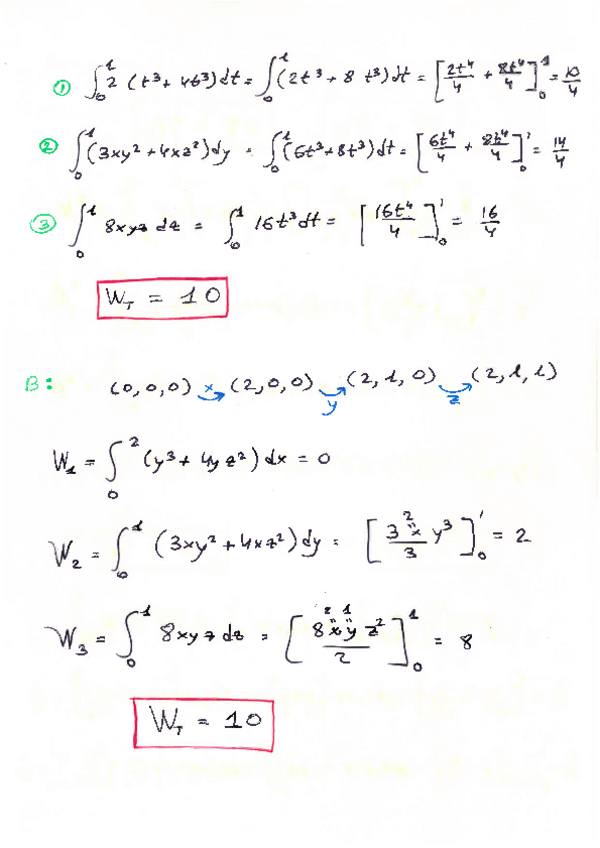 ① ∫₀¹ 2 (t³ + 4t³) dt = ∫₀¹ (2t³ + 8 t³) dt = [2t⁴/4 + 8t⁴/4]₀¹ = 10/4
② ∫₀¹ (3xy² + 4xz²) dy = ∫₀¹ (6t³ + 8t³) dt = [6t⁴/4 + 8t⁴/4]₀¹ = 14/4
③ ∫₀¹ 8xyz dz = ∫₀¹ 16t³ dt = [16t⁴/4]₀¹ = 16/4
W_T = 10
B: (0,0,0) x (2,0,0) y (2,1,0) z (2,1,1)
W₁ = ∫₀² (y³ + 4yz²) dx = 0
W₂ = ∫₀¹ (3xy² + 4xz²) dy = [3 x² y³ / 3]₀¹ = 2
W₃ = ∫₀¹ 8xyz dz = [8 x² y¹ z² / 2]₀¹ = 8
W_T = 10